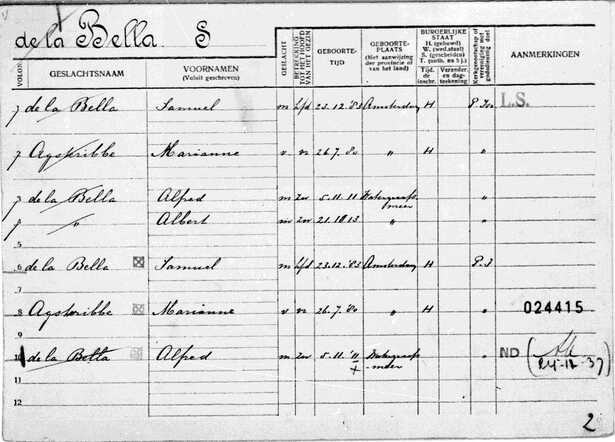 de la Bella S
VOLGNo.
GESLACHTSNAAM
VOORNAMEN
(Voluit geschreven)
GESLACHT
BETREKKING TOT HET HOOFD VAN HET GEZIN
GEBOORTE-TIJD
GEBOORTE-PLAATS
(Met aanwijzing der provincie of van het land)
BURGERLIJKE STAAT
H. (gehuwd)
W. (wed.staat)
S. (gescheiden)
T. (ontb. en b.)
Tijd. de inschr.
Verander. en dag-teekening
Kerkgenootschap of vereeniging met godsdienstig doel
AANMERKINGEN
1 de la Bella Samuel m hfd 23.12.83 Amsterdam H P. Isr. L.S.
2 Agsteribbe Marianne v vr 26.7.80 " H "
3 de la Bella Alfred m zn 5.11.11 Watergraafs-meer "
" Albert m zn 21.10.13 " "
5
6 de la Bella Samuel m hfd 23.12.83 Amsterdam H P. I
8 Agsteribbe Marianne v vr 26.7.80 " H " 024415
9
10 de la Bella Alfred m zn 5.11.11 Watergraafs-meer " ND
24-12-37
11
12
2